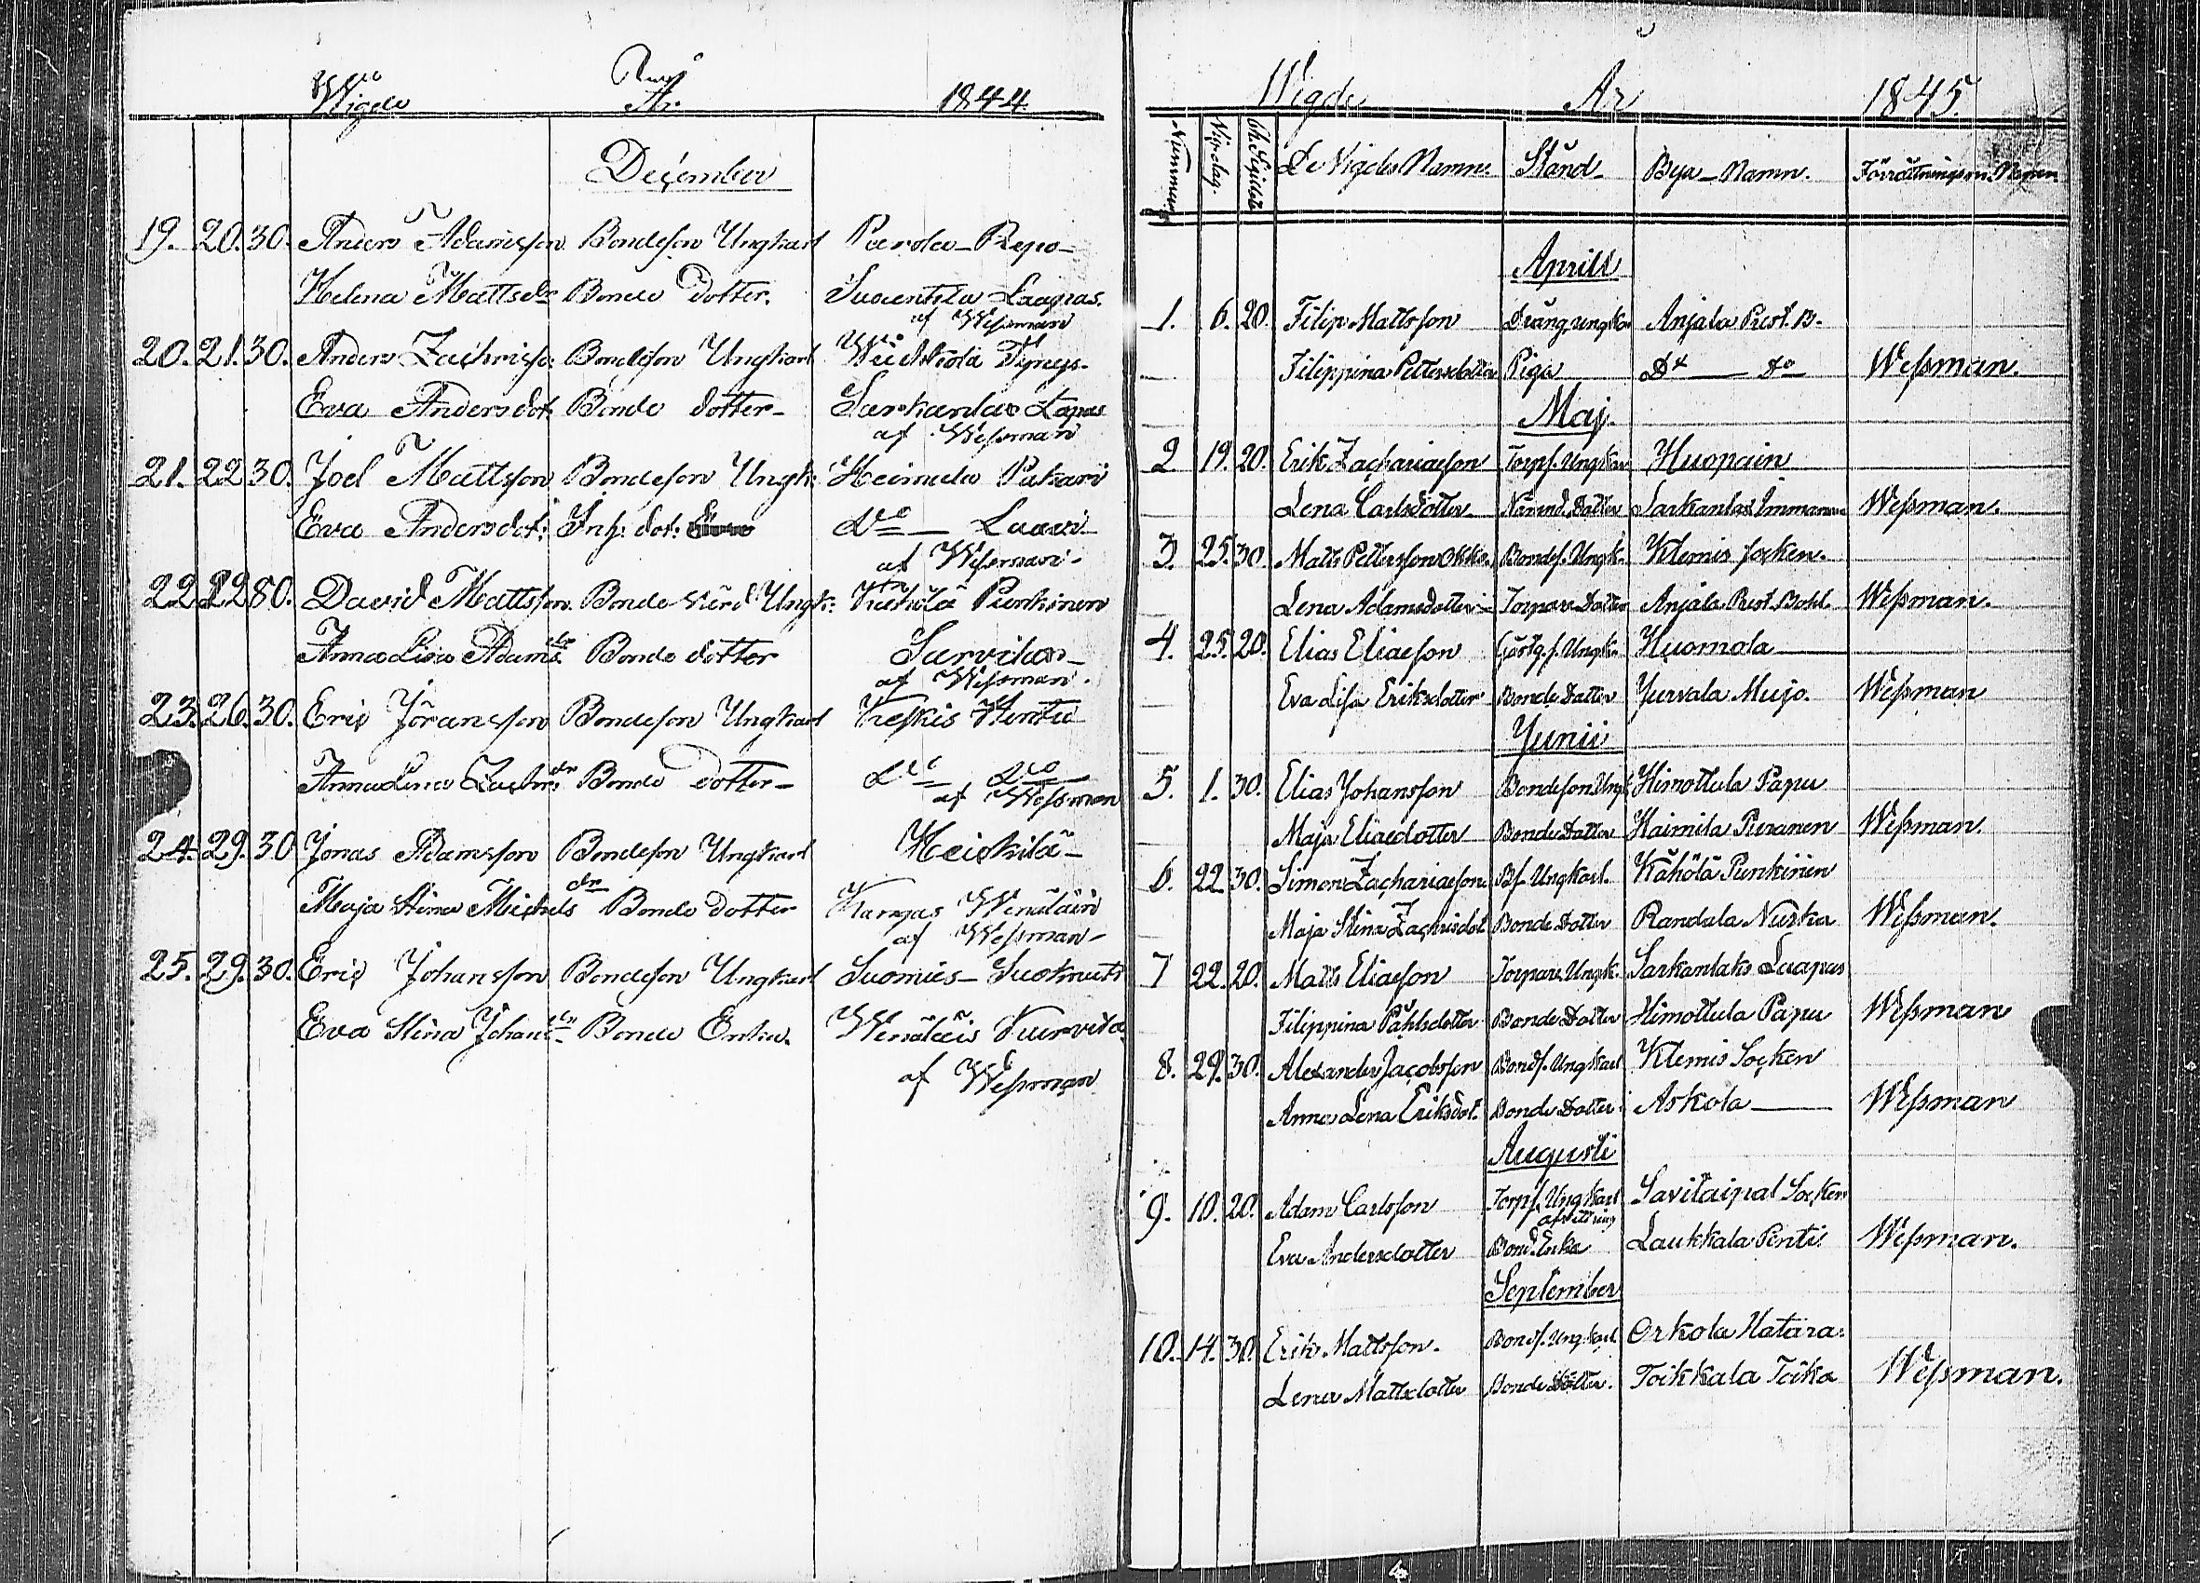 Wigde År 1844.
December
19. 20. 30. Anders Adamsson Bondeson Ungkarl Parola Repo
Helena Mattsdr Bonde dotter. Suoentila Laapas.
af Wessman
20. 21. 30. Anders Zachriss: Bondeson Ungkarl
Eva Andersdot: Bonde dotter Sarkanlax Lapas
af Wessman
21. 22 30. Joel Mattsson Bondeson Ungk: Heimala Pukari
Eva Andersdot: Inh: dot: Do Lauri
af Wessman
22. 22 80. David Mattsson Bonde Ungk: Punkinen
Anna Lisa Adams dr Bonde dotter Survila
af Wessman.
23. 26. 30. Eric Jöransson Bondeson Ungkarl Keskis Hentu
Anna Lena Zachr: dr Bonde dotter Do Do
af Wessman
24. 29. 30 Jonas Adamsson Bondeson Ungkarl Heickilä
Maja Stina Michels dr Bonde dotter Kangas Winäläin
af Wessman
25. 29. 30. Eric Johansson Bondeson Ungkarl Suomies
Eva Stina Johans dr Bonde Enka. Wenäläis
af Wessman
Wigde År 1845.
Nummer Vigsdag. De Vigdes Namn. Stånd Bya-Namn. Förrättningsm: Namn
Aprill
1. 6. 20. Filip Mattsson Dräng ungka Anjala Prest. B.
Filippina Pettersdotter Piga Do Do Wessman.
Maj.
2 19. 20. Erik Zachariasson Torps. Ungkar Huopain
Lena Carlsdotter Dotter Sarkanlax Immonen Wessman.
3. 25. 30. Matts Pettersson Okko. Bondes. Ungk. Klemis socken.
Lena Adamsdotter Torpare Dotter Anjala Prest. Bohl. Wessman.
4. 25. 20. Elias Eliasson Gästg. s. Ungk. Huomola
Eva Lisa Eriksdotter Bonde Dotter Jurvala Mujo. Wessman
Junii
5. 1. 30. Elias Johansson Bondeson Ungk Himottula Papu
Maja Eliaedotter Bonde Dotter Haimila Puranen Wessman.
6. 22 30. Simon Zachariaeson Bs. Ungkarl. Kähölä Punkinen
Maja Stina Zachrisdot Bonde Dotter Randala Nurka Wessman.
7 22. 20. Matts Eliasson Torpare Ungk. Sarkanlaks Laapas
Filippina Påhlsdotter Bonde Dotter Himottula Papu Wessman
8. 29. 30. Alexander Jacobsson Bonds. Ungkarl Klemis Socken
Anna Lena Eriksdot. Bonde Dotter Askola Wessman
Augusti
9. 10. 20. Adam Carlsson Torps. Ungkarl Savitaipal Socken
Eva Andersdotter Bond. Enka Laukkala Pentis Wessman.
September
10. 14. 30. Erik Mattsson. Bonds. Ungkarl. Orkola Hatara:
Lena Mattsdotter Bonde Dotter. Toikkala Toika Wessman.